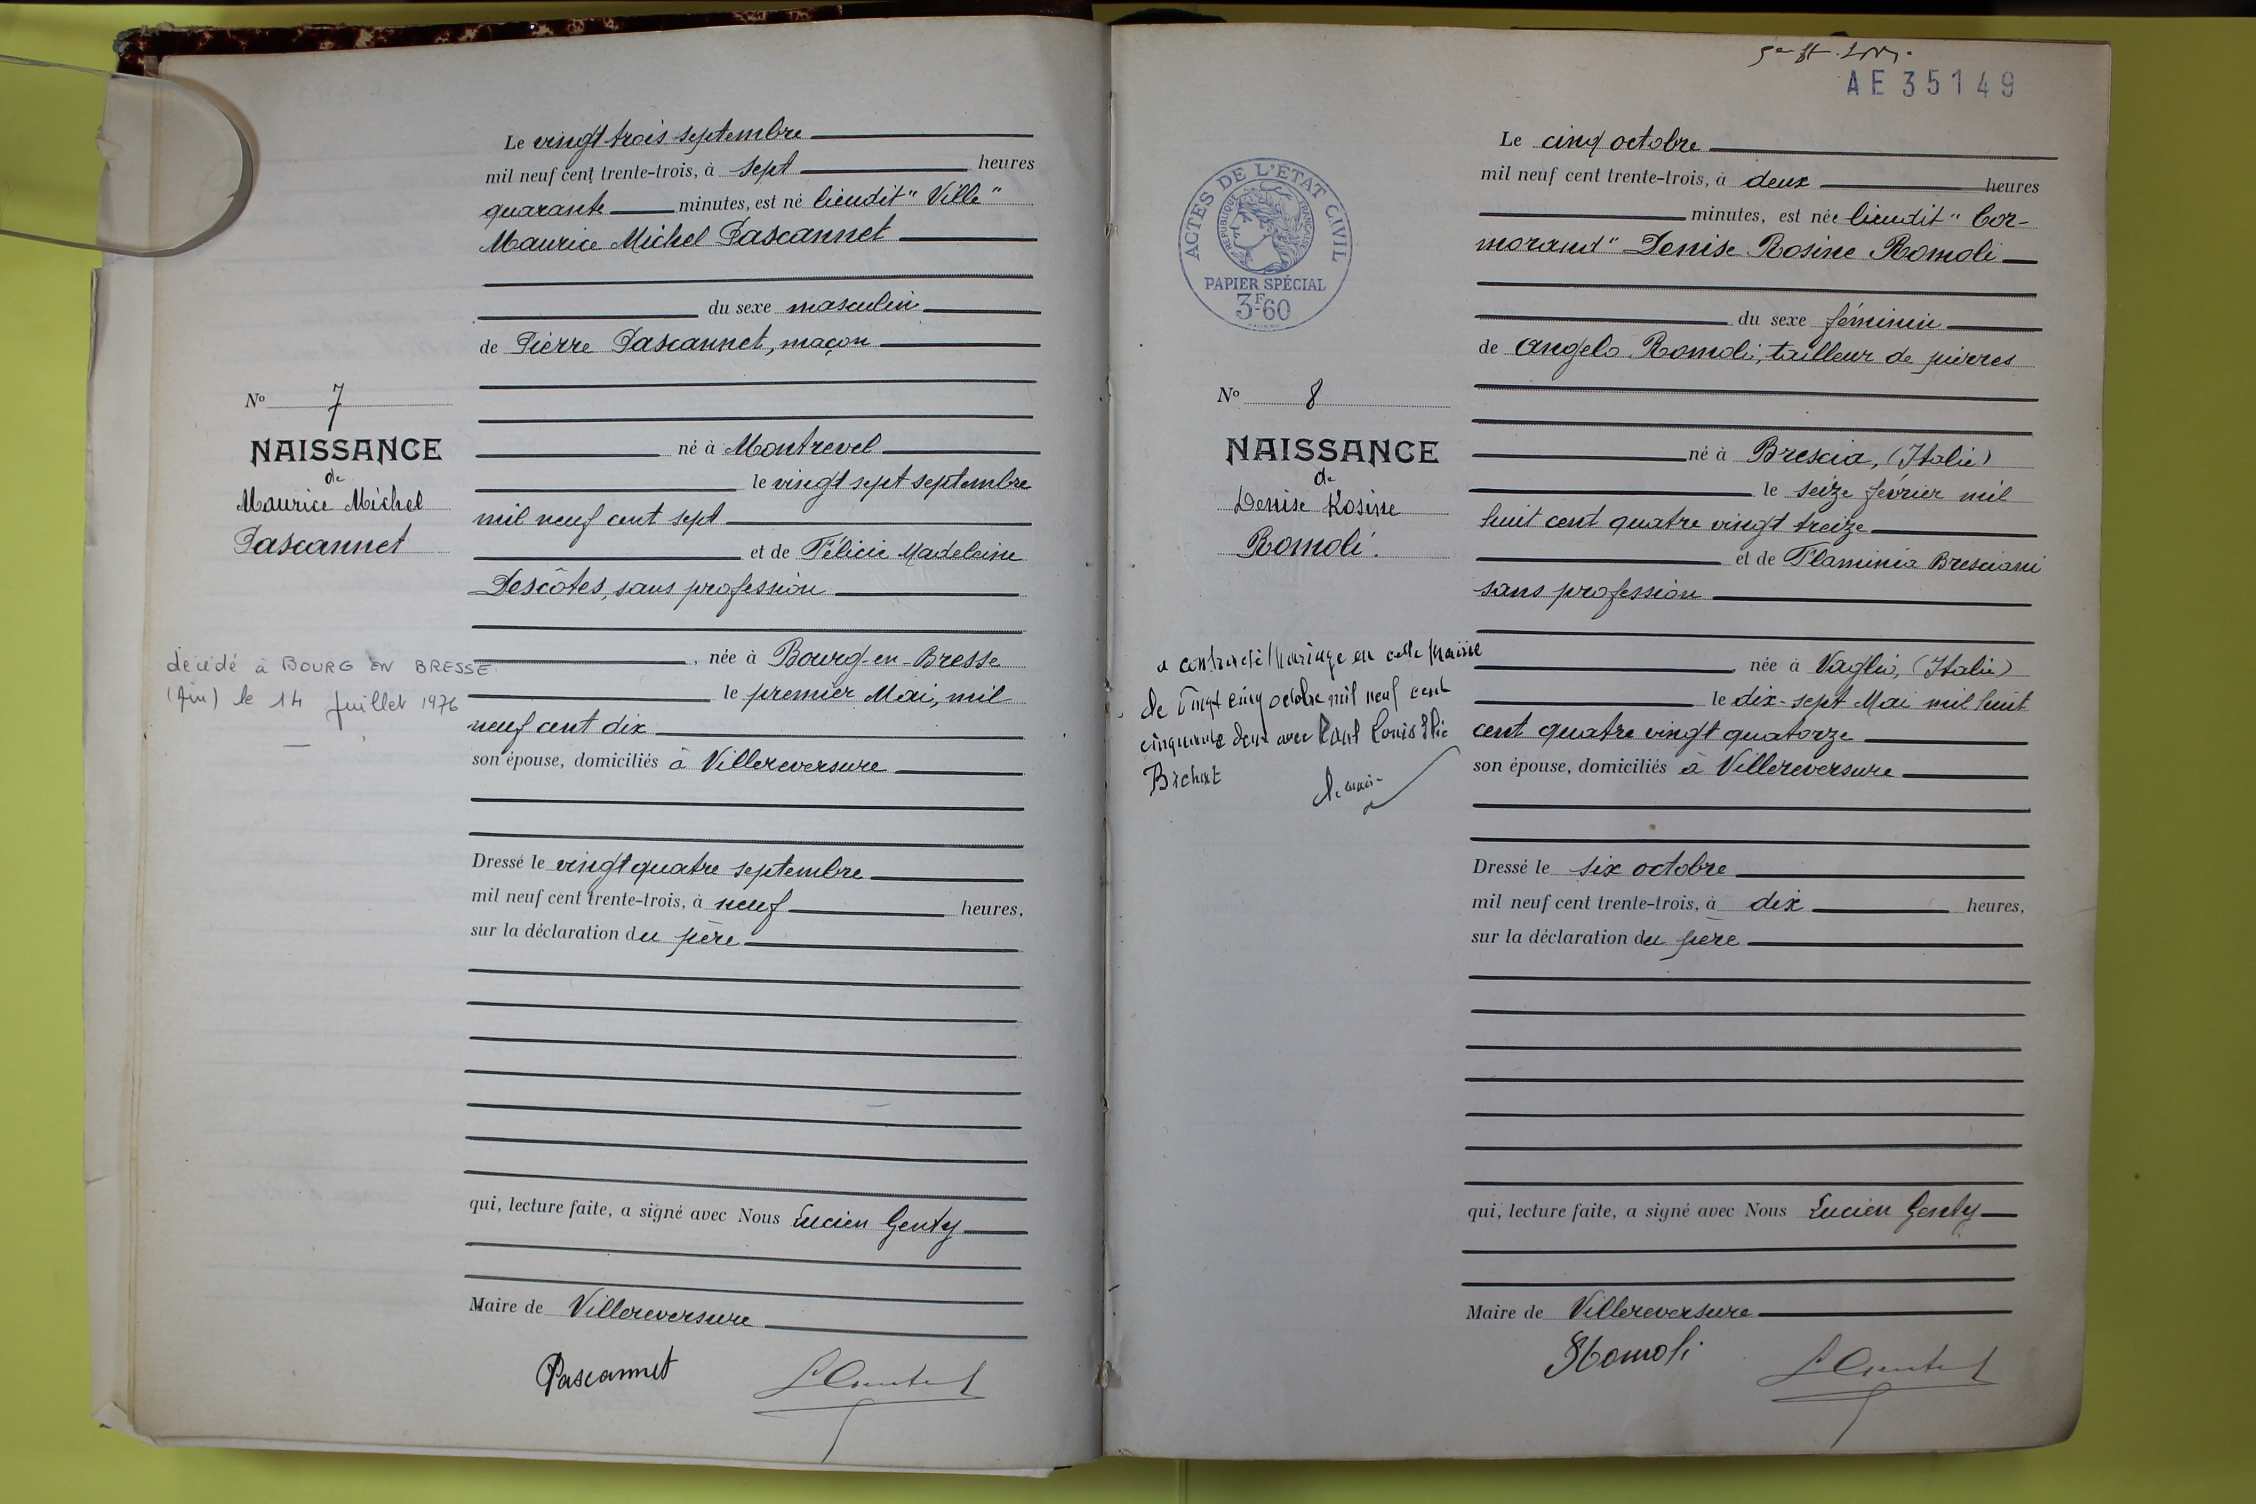 Le vingt trois septembre
mil neuf cent trente-trois, à sept heures
quarante minutes, est né lieudit "Ville"
Maurice Michel Pascannet
du sexe masculin
de Pierre Pascannet, maçon
né à Montrevel
le vingt sept septembre
mil neuf cent sept
et de Félicie Madeleine
Descôtes, sans profession
, née à Bourg-en-Bresse
le premier Mai, mil
neuf cent dix
son épouse, domiciliés à Villereversure
Dressé le vingt quatre septembre
mil neuf cent trente-trois, à neuf heures,
sur la déclaration du père
qui, lecture faite, a signé avec Nous Lucien Genty
Maire de Villereversure
Pascannet
No 7
NAISSANCE
de
Maurice Michel
Pascannet
décédé à BOURG EN BRESSE
(Ain) le 14 Juillet 1976
AE 35149
ACTES DE L'ETAT CIVIL
REPUBLIQUE FRANÇAISE
PAPIER SPÉCIAL
3F60
Le cinq octobre
mil neuf cent trente-trois, à deux heures
minutes, est née lieudit "Cor-
morand" Denise Rosine Romoli
du sexe féminin
de Angelo Romoli, tailleur de pierres
né à Brescia, (Italie)
le seize février mil
huit cent quatre vingt treize
et de Flaminia Bresciani
sans profession
née à Vaglio, (Italie)
le dix-sept Mai mil huit
cent quatre vingt quatorze
son épouse, domiciliés à Villereversure
Dressé le six octobre
mil neuf cent trente-trois, à dix heures,
sur la déclaration du père
qui, lecture faite, a signé avec Nous Lucien Genty
Maire de Villereversure
Romoli
No 8
NAISSANCE
de
Denise Rosine
Romoli.
a contracté Mariage en cette mairie
le vingt cinq octobre mil neuf cent
cinquante deux avec Paul Louis
Bichat